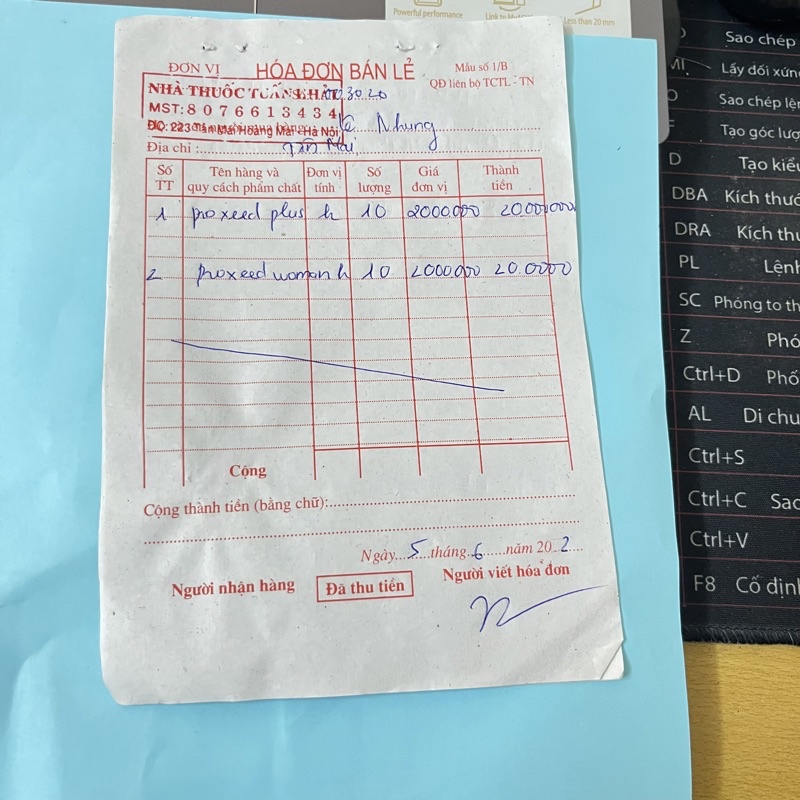 Powerful performance
Less than 20 mm
ĐƠN VỊ HÓA ĐƠN BÁN LẺ Mẫu số 1/B
QĐ liên bộ TCTL - TN
NHÀ THUỐC TUẤN
MST: 8 0 7 6 6 1 3 4 3 4
ĐC: 223 Tân Mai Hoàng Mai - Hà Nội
Nhung
Địa chỉ : Tân Mai
Số TT Tên hàng và quy cách phẩm chất Đơn vị tính Số lượng Giá đơn vị Thành tiền
1 proxeed plus h 10 2000.000 20.000.000
2 proxeed woman h 10 2000.000 20.0000
Cộng
Cộng thành tiền (bằng chữ):
Ngày 5 tháng 6 năm 20 2
Người nhận hàng Đã thu tiền Người viết hóa đơn
Sao chép
Lấy đối xứn
Sao chép lện
Tạo góc lượ
D Tạo kiểu
DBA Kích thướ
DRA Kích thu
PL Lệnh
SC Phóng to th
Z Phó
Ctrl+D Phố
AL Di chu
Ctrl+S
Ctrl+C Sao
Ctrl+V
F8 Cố định